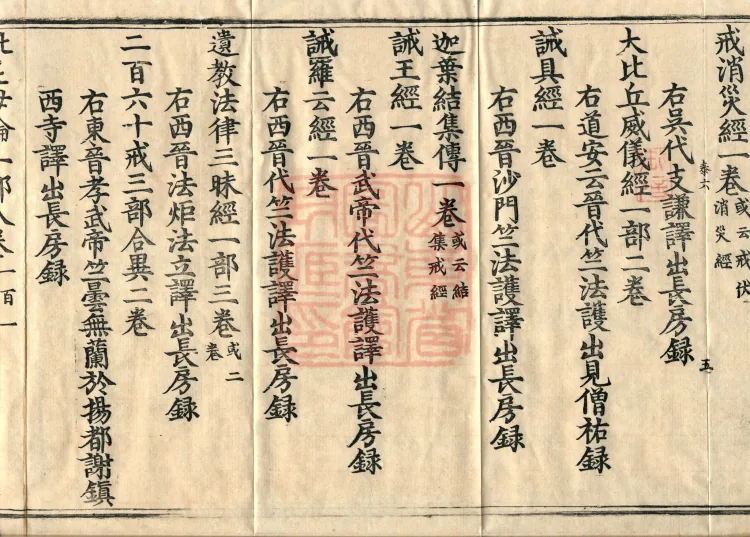 戒消災經一卷 或云戒伏消災經
右吳代支謙譯出長房錄
大比丘威儀經一部二卷
右道安云晉代竺法護出見僧祐錄
誡具經一卷
右西晉沙門竺法護譯出長房錄
迦葉結集傳一卷 或云結集戒經
誡王經一卷
右西晉武帝代竺法護譯出長房錄
誡羅云經一卷
右西晉代竺法護譯出長房錄
遺教法律三昧經一部三卷 或二卷
右西晉法炬法立譯出長房錄
二百六十戒三部合異二卷
右東晉孝武帝竺曇無蘭於揚都謝鎮
西寺譯出長房錄